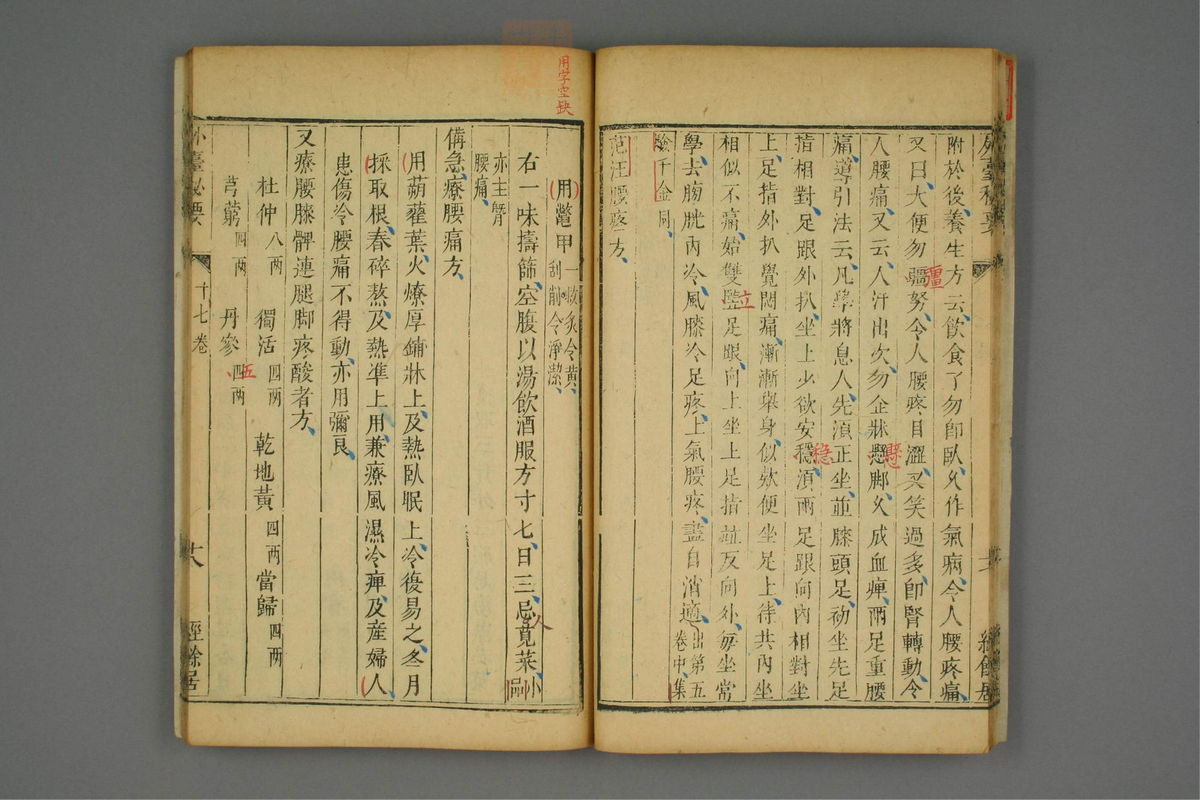 附於後養生方云飲食了勿即臥久作氣病令人腰疼痛
又曰大便勿強努令人腰疼目澀又笑過多即腎轉動令
人腰痛又云人汗出次勿企牀懸脚久成血痺兩足重腰
痛導引法云凡學將息人先須正坐並膝頭足初坐先足
指相對足跟外扒坐上少欲安穩須兩足跟向內相對坐
上足指外扒覺悶痛漸漸舉身似欵便坐足上待共內坐
相似不痛始雙豎足跟向上坐上足指並反向外每坐常
學去膀胱內冷風膝冷足疼上氣腰疼盡自消適出第五卷中集
驗千金同
范汪腰疼方
用鼈甲一枚炙令黃刮削令淨潔
右一味擣篩空腹以湯飲酒服方寸七日三忌莧菜
亦主腎腰痛
備急療腰痛方
用蒴藋葉火燎厚鋪牀上及熱臥眠上冷復易之冬月
採取根舂碎熬及熱準上用兼療風濕冷痺及產婦人
患傷冷腰痛不得動亦用彌良
又療腰膝髀連腿脚疼酸者方
杜仲八兩 獨活四兩 乾地黃四兩 當歸四兩
芎藭四兩 丹參四兩
外臺秘要 十七卷 十八 經餘居
用字空缺